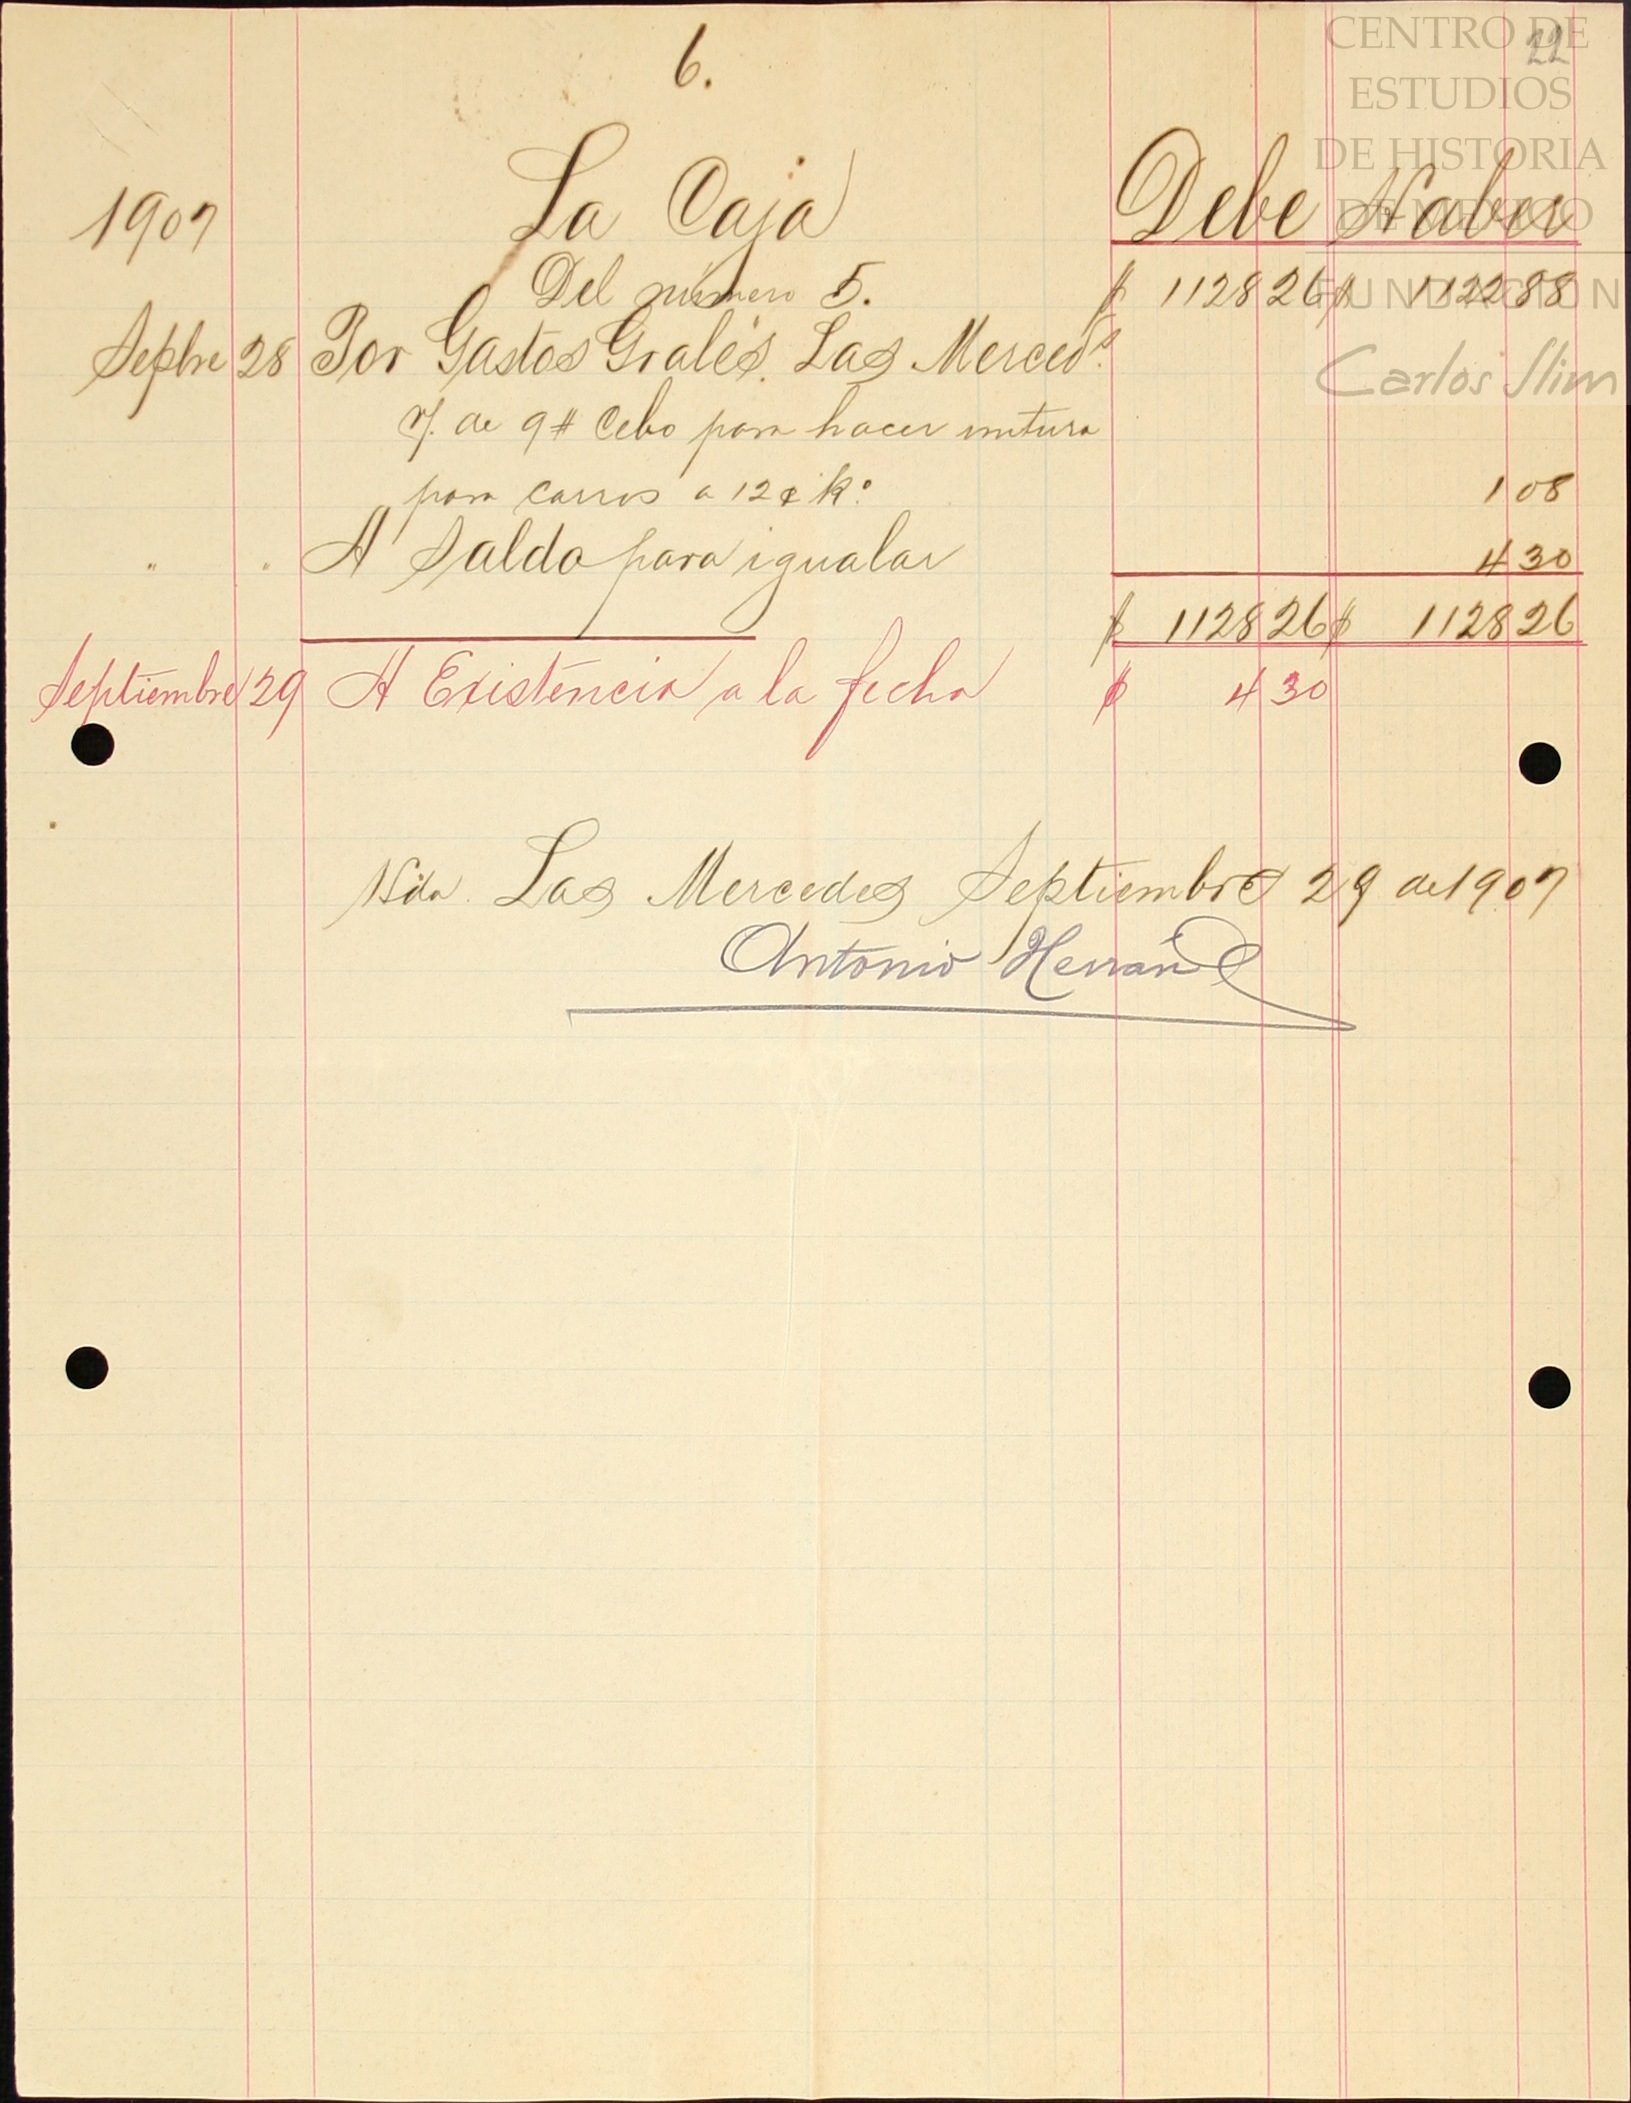 6.
22
CENTRO DE
ESTUDIOS
DE HISTORIA
DE MEXICO
FUNDACION
Carlos Slim
1907 La Caja Debe Haber
Del número 5. $ 1128 26 $ 1122 88
Sepbre 28 Por Gastos Grales. Las Merceds.
de 9# Cebo para hacer untura
para carros a 12¢ ko. 1 08
" " A Saldo para igualar 4 30
$ 1128 26 $ 1128 26
Septiembre 29 A Existencia a la fecha $ 4 30
Hda. Las Mercedes Septiembre 29 de 1907
Antonio